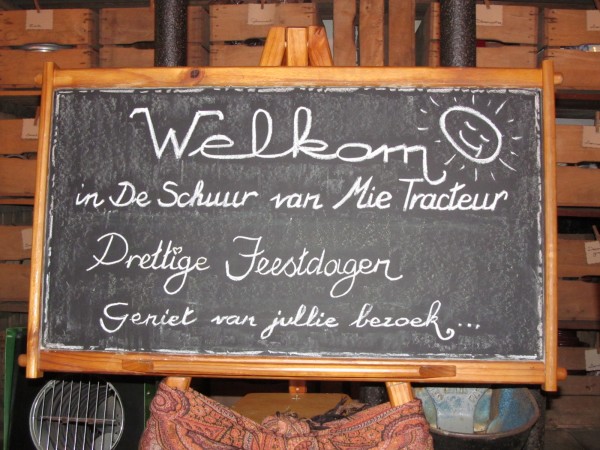 Welkom
in De Schuur van Mie Tracteur
Prettige Feestdagen
Geniet van jullie bezoek...